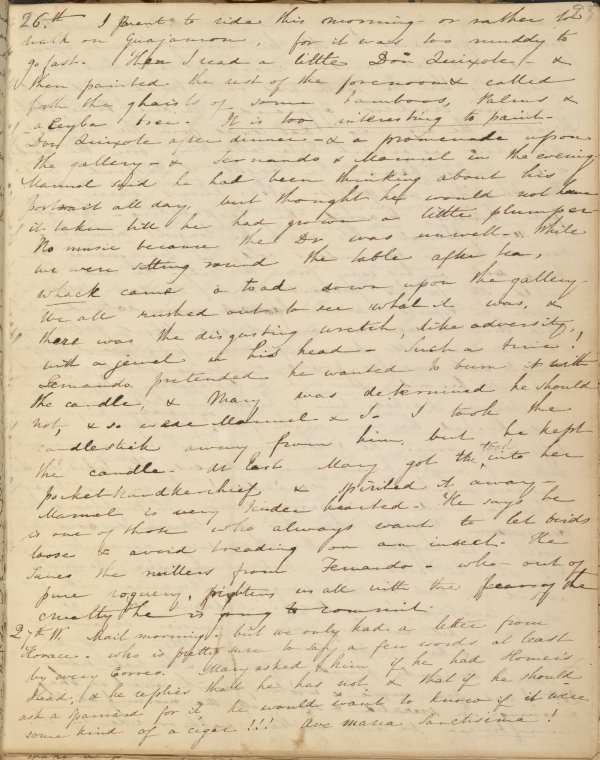 26.th I went to ride this morning - or rather to
walk on Guajamon, for it was too muddy to
go fast. Then I read a little Don Quixote - &
then painted the rest of the forenoon & called
forth the ghosts of some bamboos, Palms &
a Ceyba tree. It is too interesting to paint -
Don Quixote after dinner - & a promenade upon
the gallery - & Fernando & Manuel in the evening
Manuel said he had been thinking about his
portrait all day, but thought he would not have
it taken till he had grown a little plumper
No music because the Dr was unwell - While
we were sitting round the table after tea,
whack came a toad down upon the gallery -
We all rushed out to see what it was, &
there was the disgusting wretch, like adversity,
with a jewel in his head - Such a time!
Fernando pretended he wanted to burn it with
the candle, & Mary was determined he should
not, & so were Manuel & I - I took the
candlestick away from him, but he kept
the candle - At last Mary got the toad into her
pocket handkerchief & spirited it away -
Manuel is very tender hearted - He says he
is one of those who always want to let birds
loose & avoid treading on an insect. He
saves the millers from Fernando - who out of
pure roguery, frightens us all with the fear of the
cruelty he is going to commit.
27th. Mail morning, but we only had a letter from
Horace - who is pretty sure to say a few words at least
by every Correo. Mary asked him if he had Homer's
Iliad, & he replies that he has not & that if he should
ask a Spaniard for it, he would want to know if it were
some kind of a cigar!!! Ave maria Sanctisima!